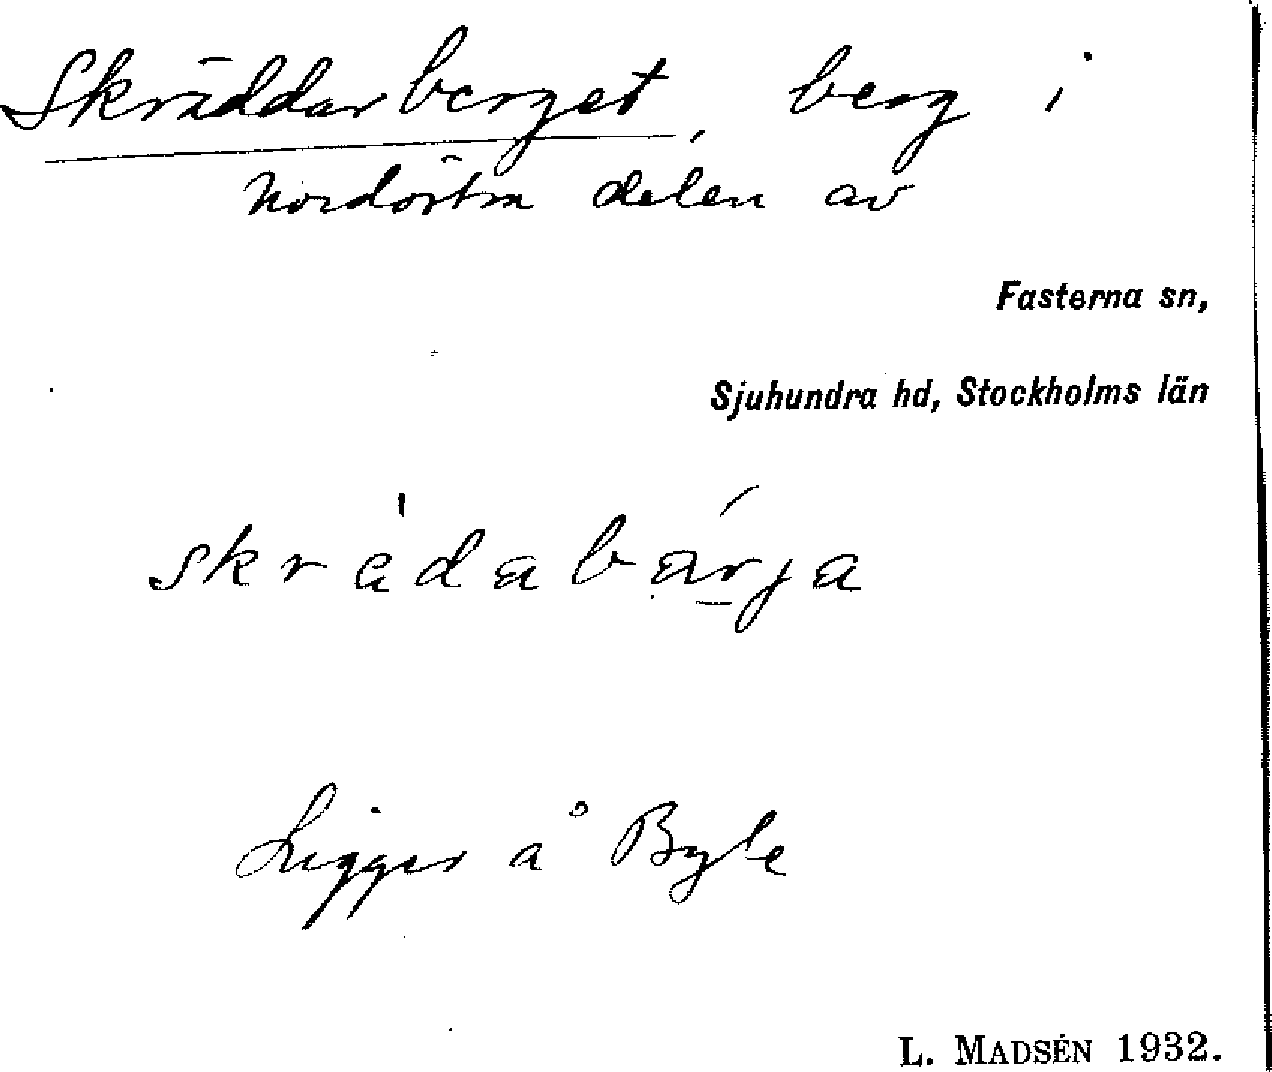 Skräddarberget, berg i
nordöstra delen av
Fasterna sn,
Sjuhundra hd, Stockholms län
skrädabärja
Ligger å Byle
L. MADSÉN 1932.